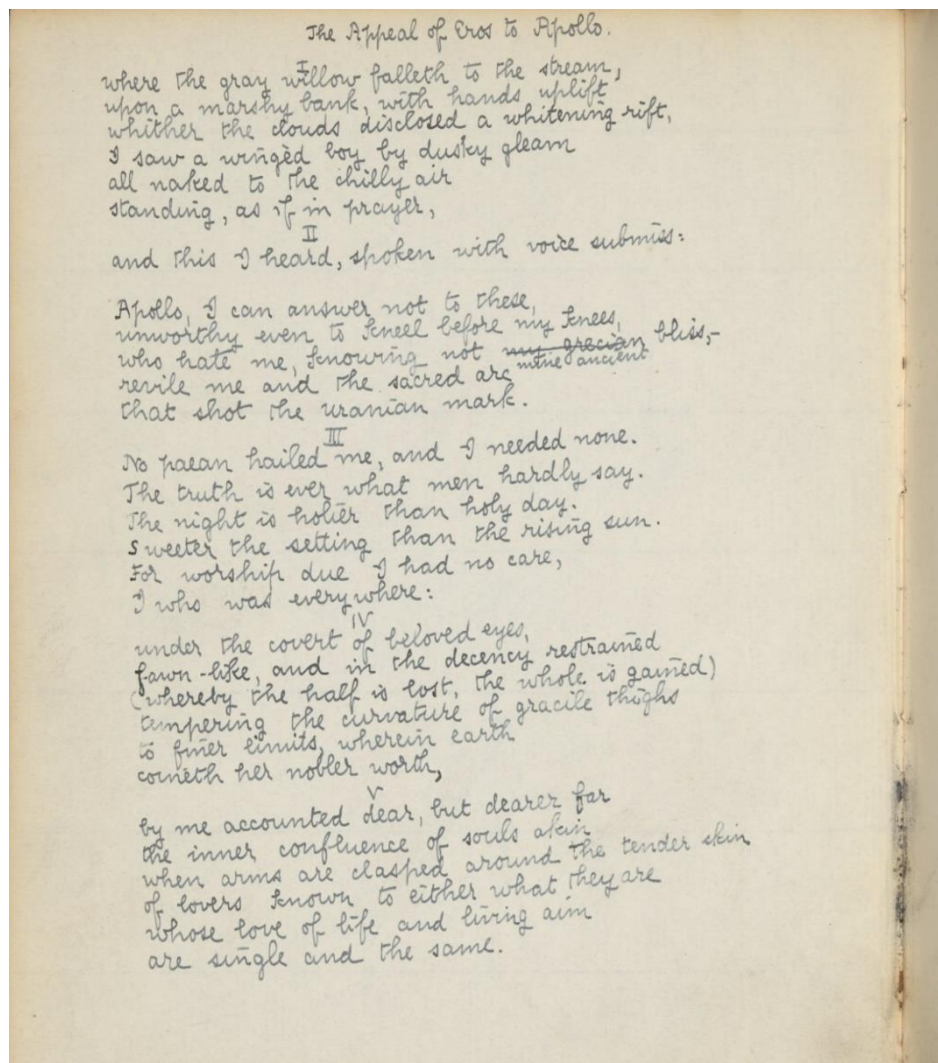 The Appeal of Eros to Apollo.
I
where the gray willow falleth to the stream,
upon a marshy bank, with hands uplift
whither the clouds disclosed a whitening rift,
I saw a wingèd boy by dusky gleam
all naked to the chilly air
standing, as if in prayer,
II
and this I heard, spoken with voice submiss:
Apollo, I can answer not to these,
unworthy even to kneel before my knees,
who hate me, knowing not my grecian bliss,-
mine ancient
revile me and the sacred arc
that shot the uranian mark.
III
No paean hailed me, and I needed none.
The truth is ever what men hardly say.
The night is holier than holy day.
Sweeter the setting than the rising sun.
For worship due I had no care,
I who was everywhere:
IV
under the covert of beloved eyes,
fawn-like, and in the decency restrained
(whereby the half is lost, the whole is gained)
tempering the curvature of gracile thighs
to finer limits, wherein earth
coineth her nobler worth,
V
by me accounted dear, but dearer far
the inner confluence of souls akin
when arms are clasped around the tender skin
of lovers known to either what they are
whose love of life and living aim
are single and the same.